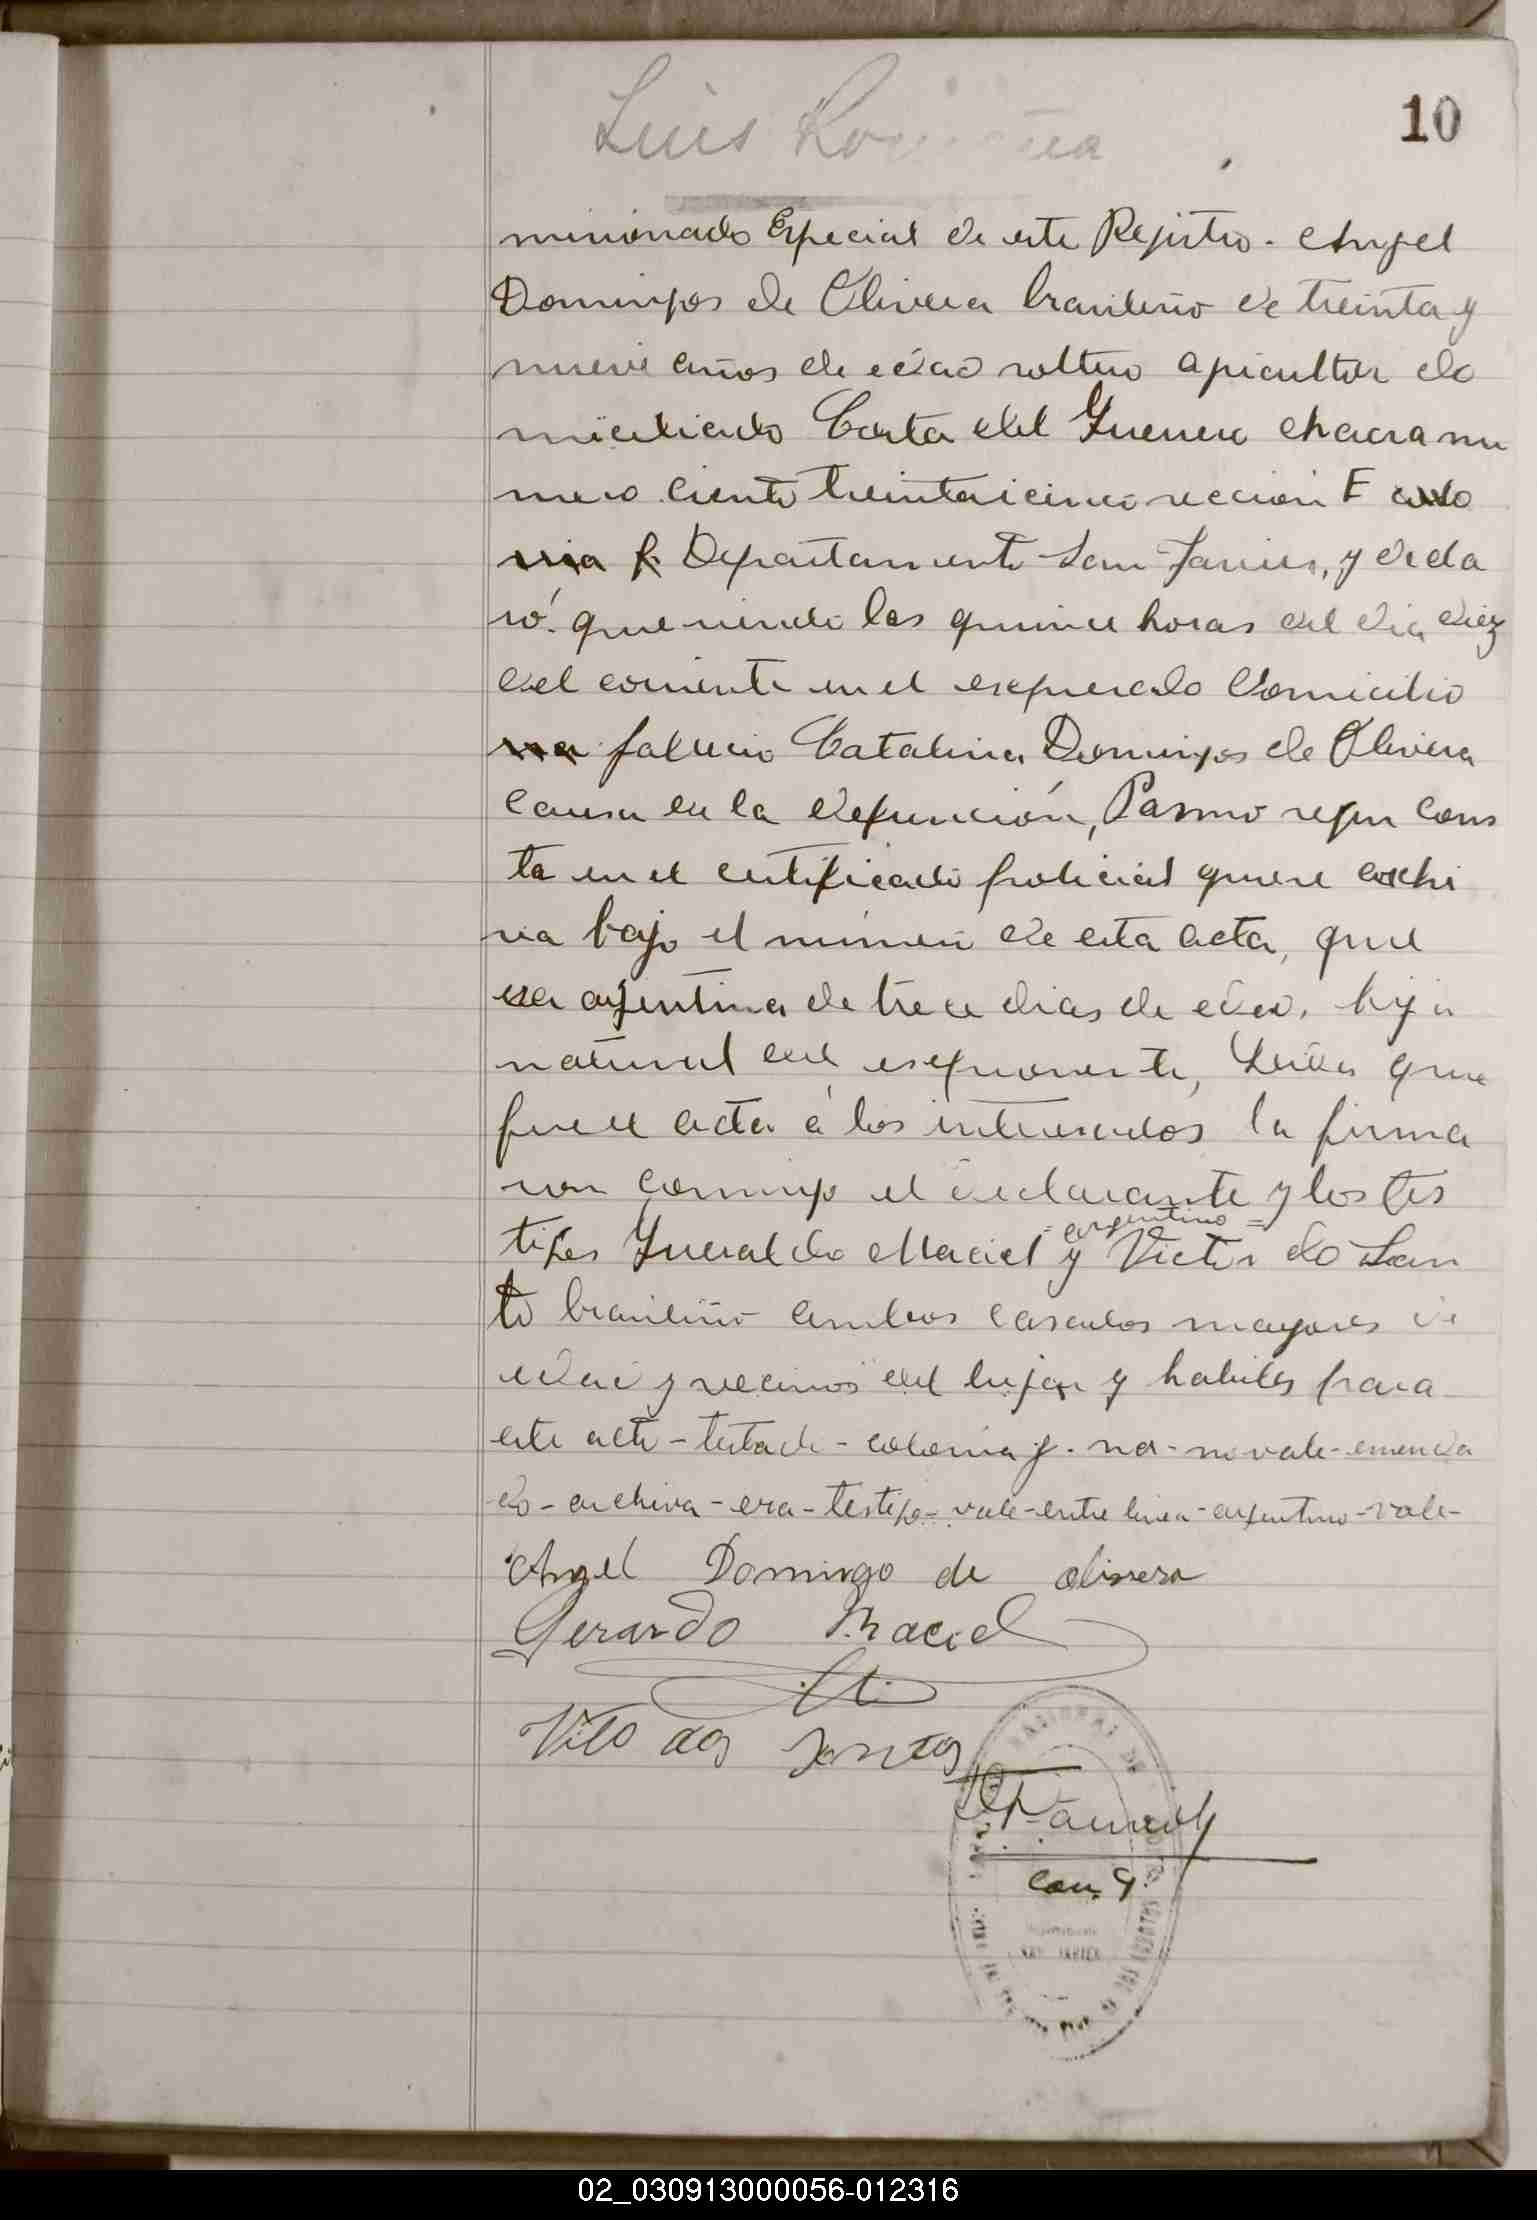 Luis
10
misionado Especial de este Rejistro - Angel
Domingos de Olivera brasileño de treinta y
nueve años de edad soltero agricultor do
miciliado Costa del Guerrero chacra nu
mero ciento treintaicinco seccion F colo
nia f. Departamento San Javier, y decla
ró que siendo las quince horas del dia diez
del corriente en el espresado domicilio
na fallecio Catalina Domingos de Olivera
causa de la defunción, Pasmo segun cons
ta en el certificado policial que se archi
va bajo el número de esta acta, que
era arjentina de trece dias de edad, hija
natural del esponente, Leida que
fue el acta á los interesados la firma
ron conmigo el declarante y los tes
= argentino =
tigos Gueraldo Maciel y Victor do San
to brasileño ambos casados mayores de
edad y vecinos del lugar y habiles para
este acto - testado - colonia f. na - no vale - emenda
do - archiva - era - testigo - vale - entre linea - argentino - vale -
Angel Domingo de olivera
Gerardo Maciel
Vito dos Santos
SAN JAVIER
02_030913000056-012316